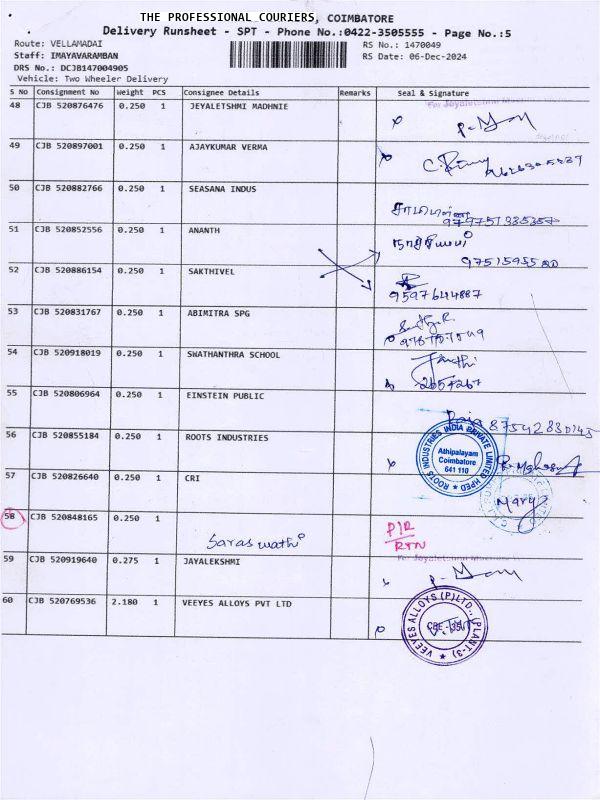 THE PROFESSIONAL COURIERS, COIMBATORE
Delivery Runsheet - SPT - Phone No.:0422-3505555 - Page No.:5
Route: VELLAMADAI
RS No.: 1470049
Staff: IMAYAVARAMBAN
RS Date: 06-Dec-2024
DRS No.: DCJB147004905
Vehicle: Two Wheeler Delivery
S No Consignment No Weight PCS Consignee Details Remarks Seal & Signature
48 CJB 520876476 0.250 1 JEYALETSHMI MADHNIE
49 CJB 520897001 0.250 1 AJAYKUMAR VERMA
50 CJB 520882766 0.250 1 SEASANA INDUS
51 CJB 520852556 0.250 1 ANANTH
52 CJB 520886154 0.250 1 SAKTHIVEL
9597644887
53 CJB 520831767 0.250 1 ABIMITRA SPG
54 CJB 520918019 0.250 1 SWATHANTHRA SCHOOL
2657267
55 CJB 520806964 0.250 1 EINSTEIN PUBLIC
56 CJB 520855184 0.250 1 ROOTS INDUSTRIES
ROOTS INDUSTRIES INDIA PRIVATE LIMITED HPED
Athipalayam
Coimbatore
641 110
57 CJB 520826640 0.250 1 CRI
Mary
58 CJB 520848165 0.250 1
Saraswathi
P/R
RTN
59 CJB 520919640 0.275 1 JAYALEKSHMI
60 CJB 520769536 2.180 1 VEEYES ALLOYS PVT LTD
VEEYES ALLOYS (P) LTD., (PLANT-3)